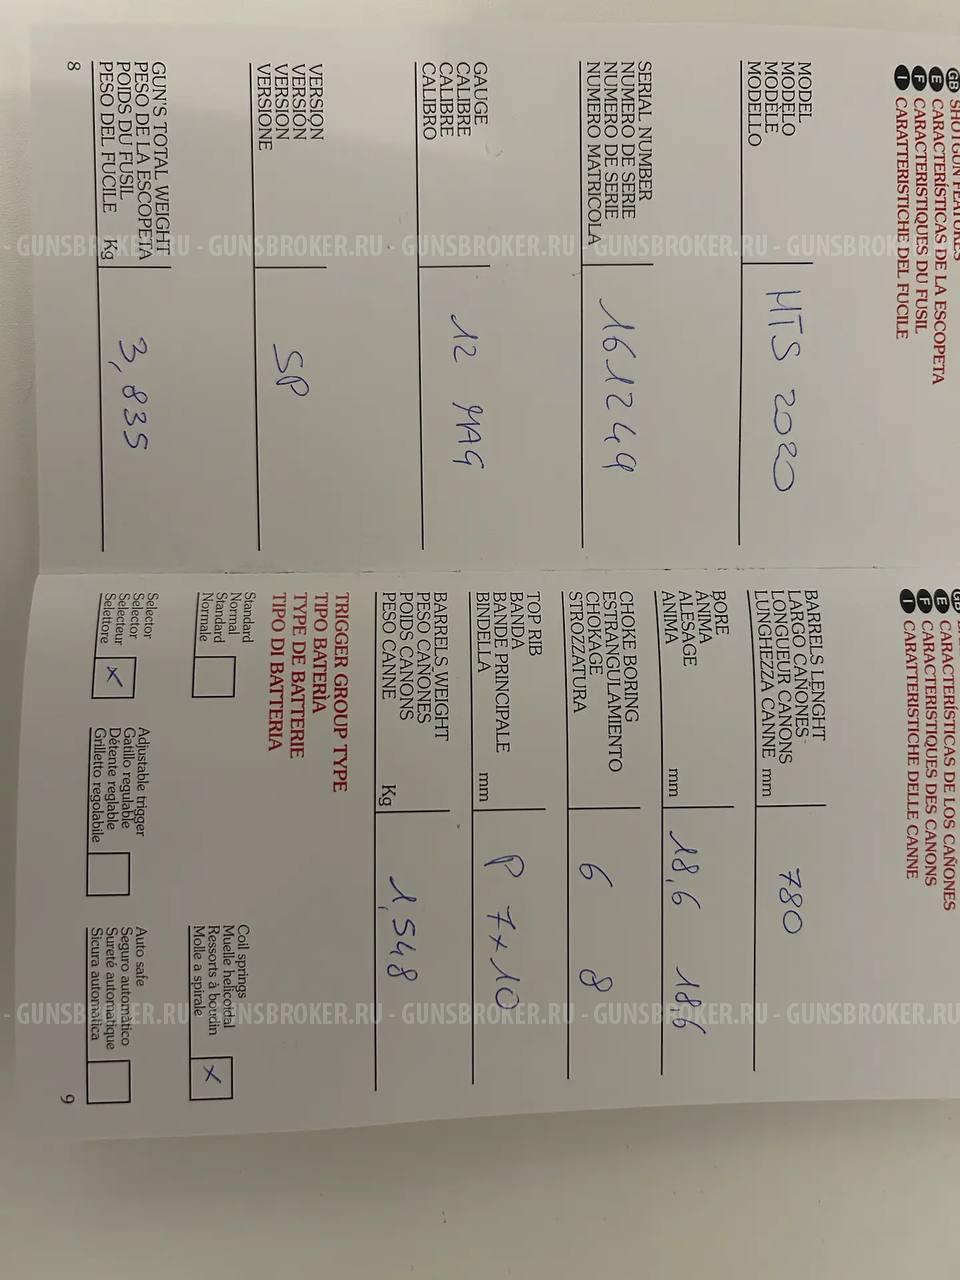 GB SHOTGUN FEATURES
E CARACTERÍSTICAS DE LA ESCOPETA
F CARACTERISTIQUES DU FUSIL
I CARATTERISTICHE DEL FUCILE
MODEL
MODELO
MODÈLE
MODELLO
MTS 2020
SERIAL NUMBER
NUMERO DE SERIE
NUMERO DE SERIE
NUMERO MATRICOLA
161249
GAUGE
CALIBRE
CALIBRE
CALIBRO
12 MAG
VERSION
VERSIÓN
VERSION
VERSIONE
SP
GUN'S TOTAL WEIGHT
PESO DE LA ESCOPETA
POIDS DU FUSIL
PESO DEL FUCILE Kg
3,835
8
E CARACTERÍSTICAS DE LOS CAÑONES
F CARACTERISTIQUES DES CANONS
I CARATTERISTICHE DELLE CANNE
BARRELS LENGHT
LARGO CAÑONES
LONGUEUR CANONS
LUNGHEZZA CANNE mm
780
BORE
ÁNIMA
ALESAGE
ANIMA mm
18,6 18,6
CHOKE BORING
ESTRANGULAMIENTO
CHOKAGE
STROZZATURA
6 8
TOP RIB
BANDA
BANDE PRINCIPALE
BINDELLA mm
P 7x10
BARRELS WEIGHT
PESO CAÑONES
POIDS CANONS
PESO CANNE Kg
1,548
TRIGGER GROUP TYPE
TIPO BATERÌA
TYPE DE BATTERIE
TIPO DI BATTERIA
Standard
Normal
Standard
Normale
Coil springs
Muelle helicoidal
Ressorts à boudin
Molle a spirale
x
Selector
Selector
Selecteur
Selettore
x
Adjustable trigger
Gatillo regulable
Détente reglable
Grilletto regolabile
Auto safe
Seguro automàtico
Sureté automatique
Sicura automatica
9
- GUNSBROKER.RU - GUNSBROKER.RU - GUNSBROKER.RU - GUNSBROKER.RU - GUNSBROKER.RU
- GUNSBROKER.RU - GUNSBROKER.RU - GUNSBROKER.RU - GUNSBROKER.RU - GUNSBROKER.RU